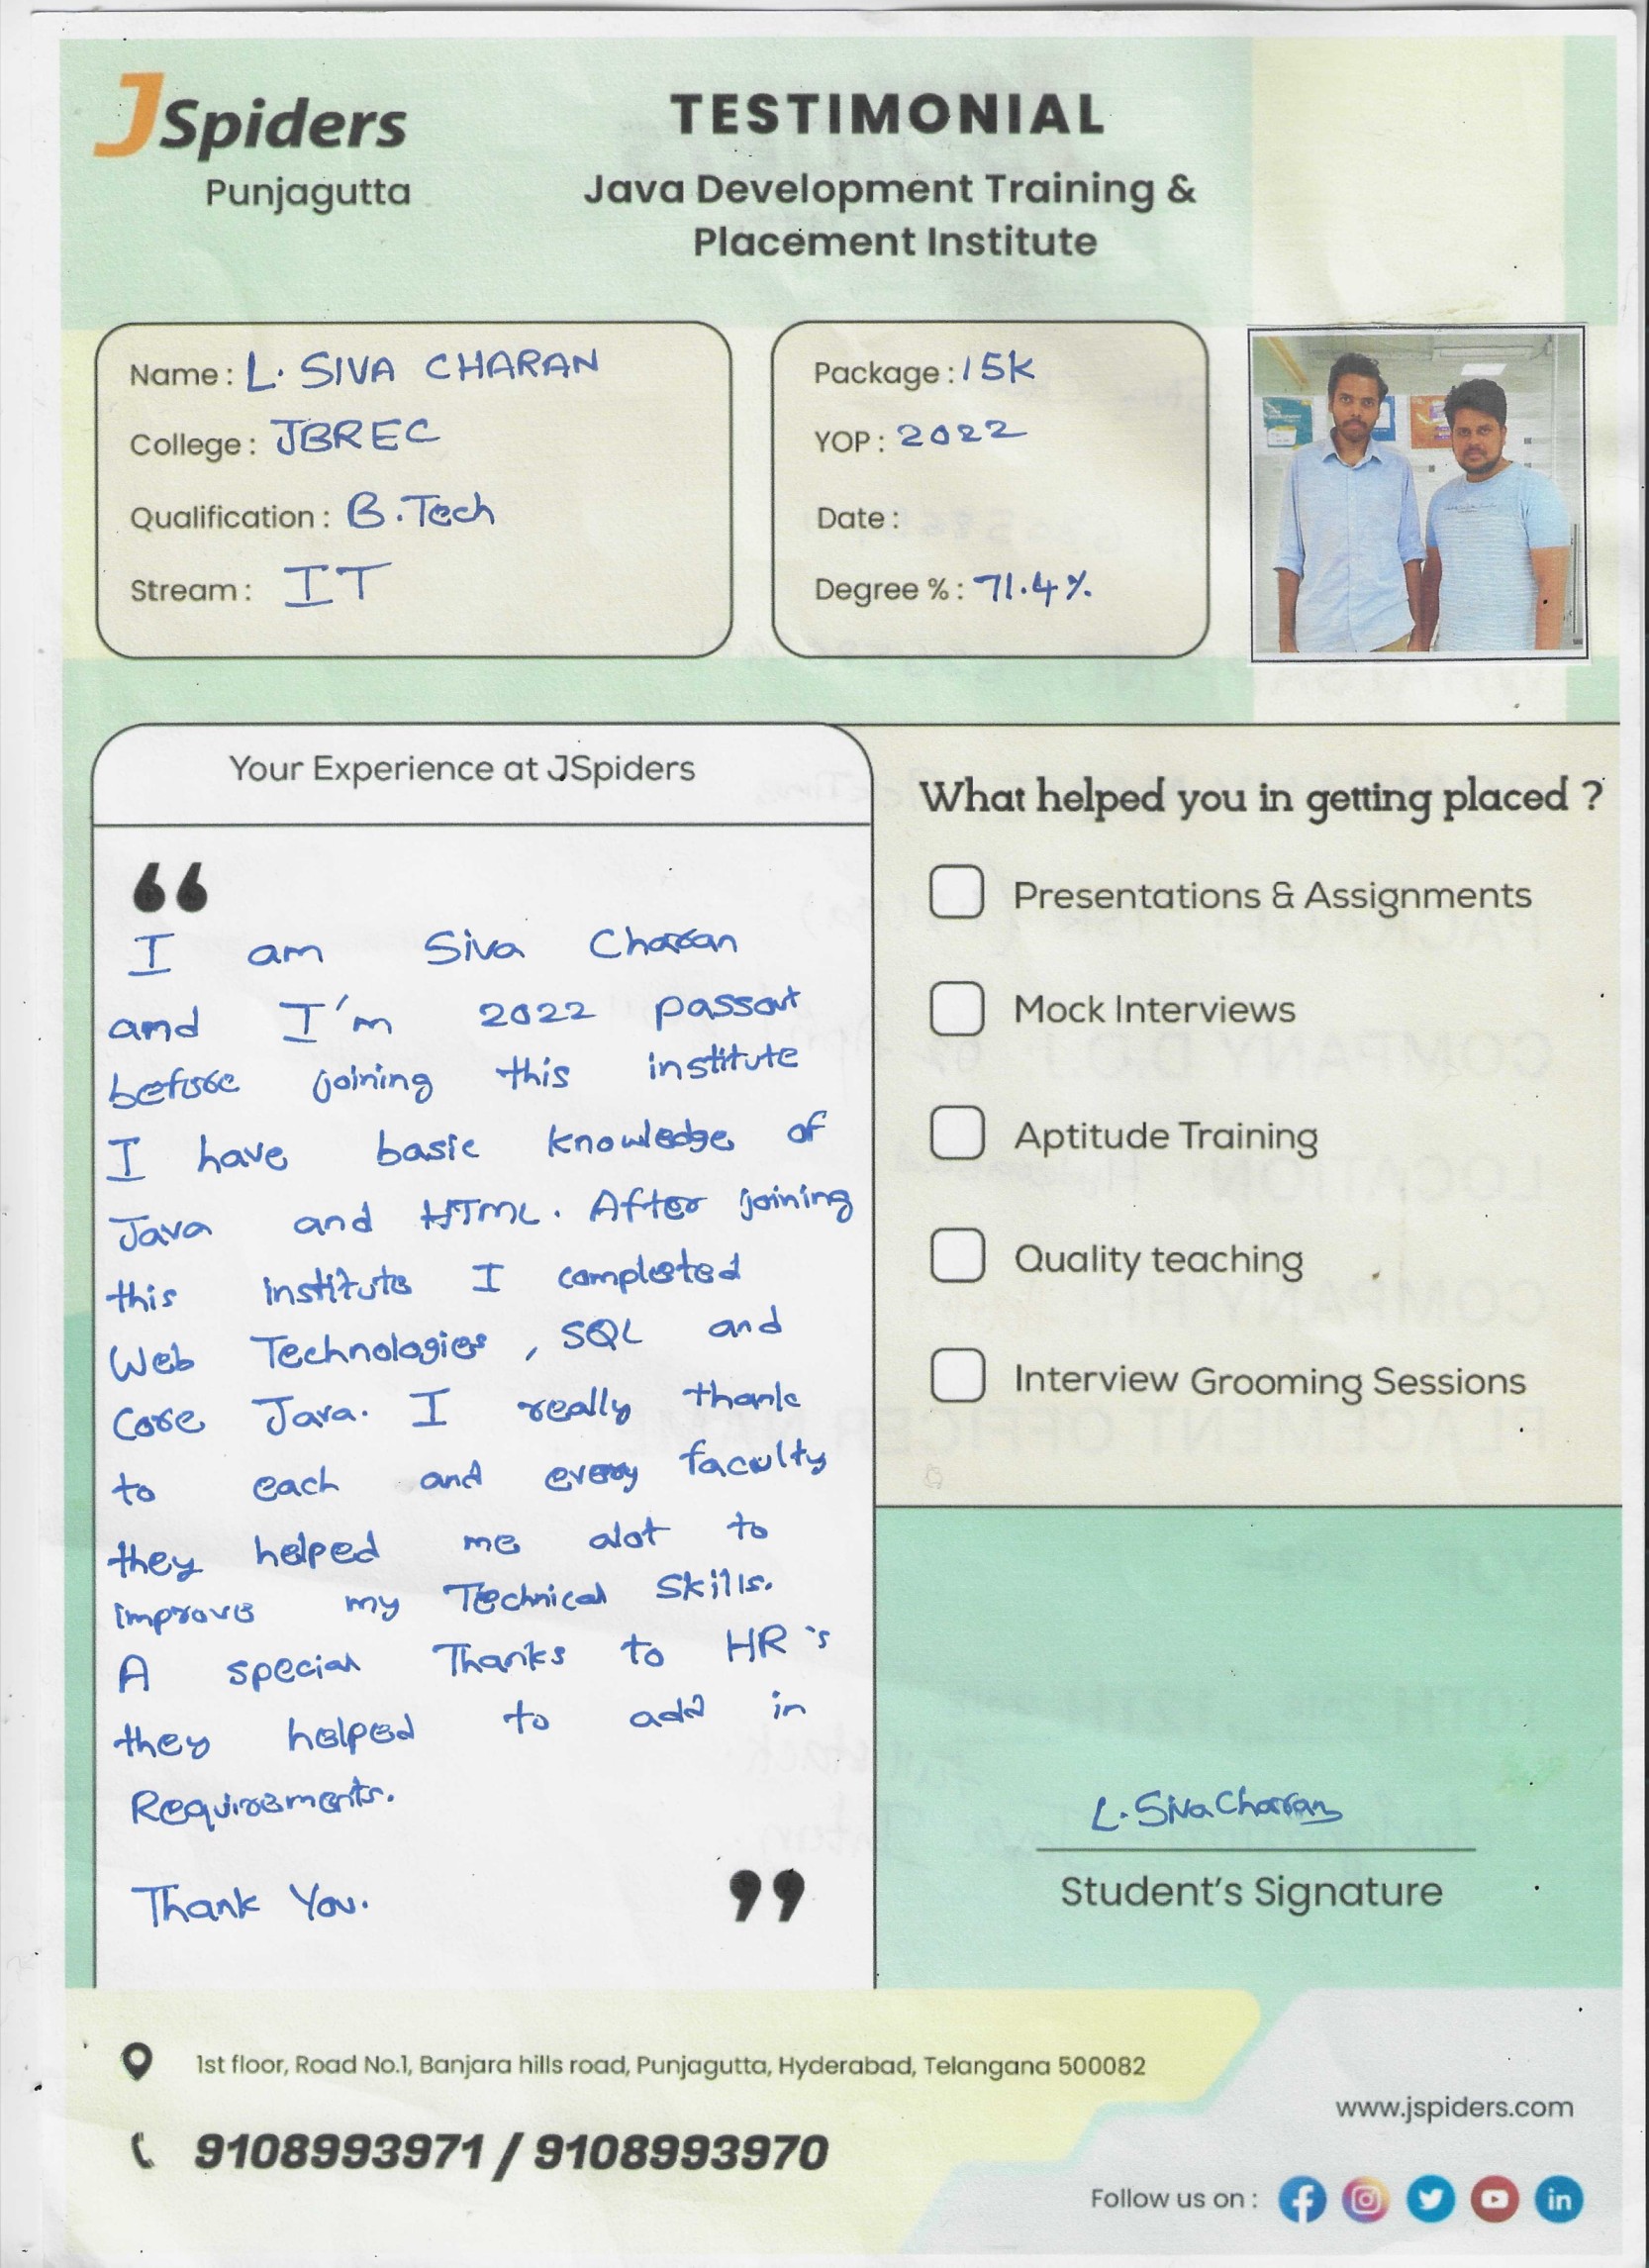 JSpiders
Punjagutta
TESTIMONIAL
Java Development Training &
Placement Institute
Name : L. SIVA CHARAN
College : JBREC
Qualification : B.Tech
Stream : IT
Package : 15K
YOP : 2022
Date :
Degree % : 71.4%
Your Experience at JSpiders
“
I am Siva Charan
and I'm 2022 passout
before joining this institute
I have basic knowledge of
Java and HTML. After joining
this institute I completed
Web Technologies, SQL and
Core Java. I really thank
to each and every faculty
they helped me alot to
improve my Technical Skills.
A special Thanks to HR's
they helped to add in
Requirements.
Thank You.
”
What helped you in getting placed ?
Presentations & Assignments
Mock Interviews
Aptitude Training
Quality teaching
Interview Grooming Sessions
L. Siva Charan
Student's Signature
1st floor, Road No.1, Banjara hills road, Punjagutta, Hyderabad, Telangana 500082
9108993971 / 9108993970
www.jspiders.com
Follow us on :